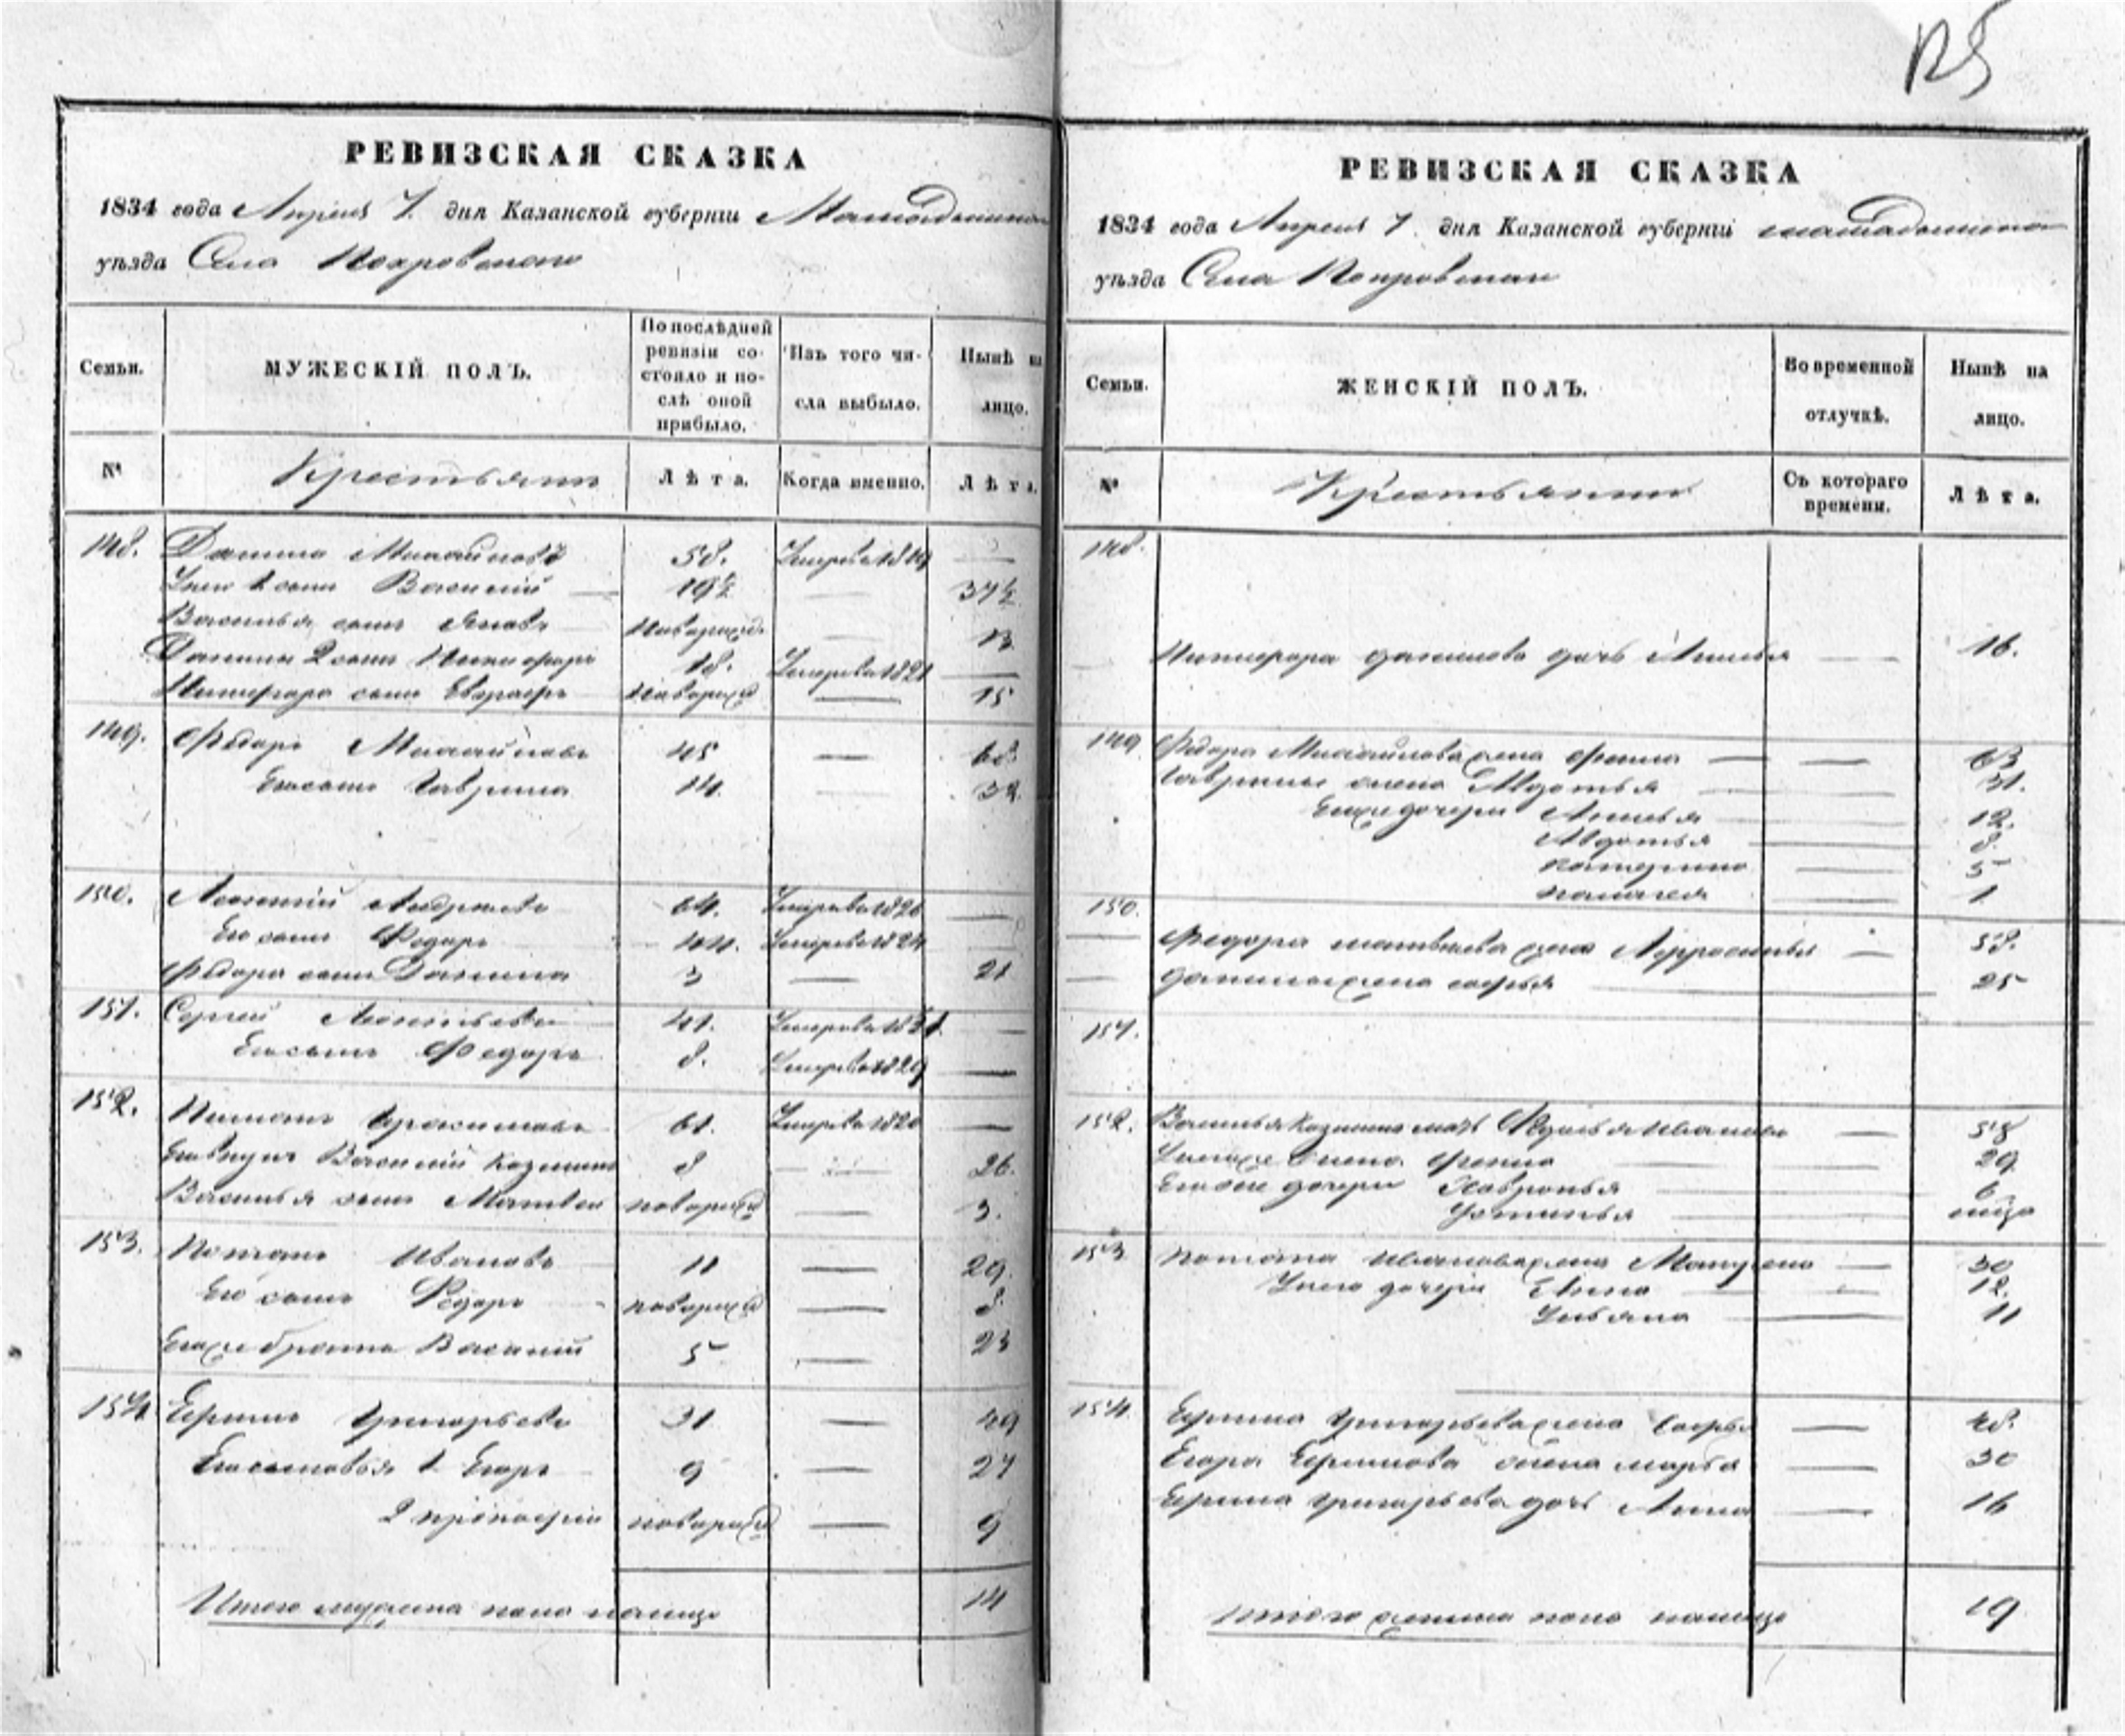 125
РЕВИЗСКАЯ СКАЗКА
1834 года Апреля 7. дня Казанской губернiи
уѣзда Села Покровскаго
Семьи.
МУЖЕСКIЙ ПОЛЪ.
По послѣдней ревизiи состояло и послѣ оной прибыло.
Изъ того числа выбыло.
Нынѣ на лицо.
№
Крестьяне
Лѣта.
Когда именно.
Лѣта.
148. Данило Михайловъ 58. Умерѣ в 1819 —
1 сынъ Василiй — 19½ — 37½
Василья сынъ Яковъ новорожд. — 13
Данилы 2 сынъ Никифоръ 18. Умерѣ в 1821 —
Никифора сынъ Евграфъ новорожд — 15
149. Федоръ Михайловъ 45 —
Его сынъ Гаврила 14. — 32
150. Андреевъ 64. Умерѣ в 1826 —
Его сынъ Федоръ 44. Умерѣ в 1824 —
Федора сынъ Данила 3 — 21
151. Сергей 41. Умерѣ в —
Его сынъ Федоръ 8. Умерѣ в 1829 —
152. 61. Умерѣ в 1820 —
Василiй Казминъ 8 — 26.
Василья сынъ Матвей новорожд — 3.
153. Потапъ Ивановъ 11 — 29.
Его сынъ Федоръ новорожд — 8.
Его же братъ Василiй 5 — 23
154. Ермилъ Григорьевъ 31 — 49
Его сыновья 1. Егоръ 9 — 27
2 Прокофiй новорожд — 9
Итого мужеска пола на лицо 14
РЕВИЗСКАЯ СКАЗКА
1834 года Апреля 7. дня Казанской губернiи
уѣзда Села Покровскаго
Семьи.
ЖЕНСКIЙ ПОЛЪ.
Во временной отлучкѣ.
Нынѣ на лицо.
№
Крестьяне
Съ котораго времени.
Лѣта.
148.
Никифора Данилова дочь — 16.
149. Федора Михайлова жена — 63
Гаврилы жена Авдотья — 31.
Его же дочери — 12.
Авдотья — 8
Катерина — 5
Палагея — 1
150.
Федора жена — 58.
Данилы жена Софья — 25
151.
152. Василья Казмина мать Ивановна — 58
жена — 29
Его же дочери Хавронья — 6
Устинья —
153. Потапа Иванова жена — 30
У него дочери Анна — 12.
Ульяна — 11
154. Ермила Григорьева жена Софья — 48.
Егора Ермилова жена Марья — 30
Ермила Григорьева дочь Анна — 16
Итого женска пола на лицо 19